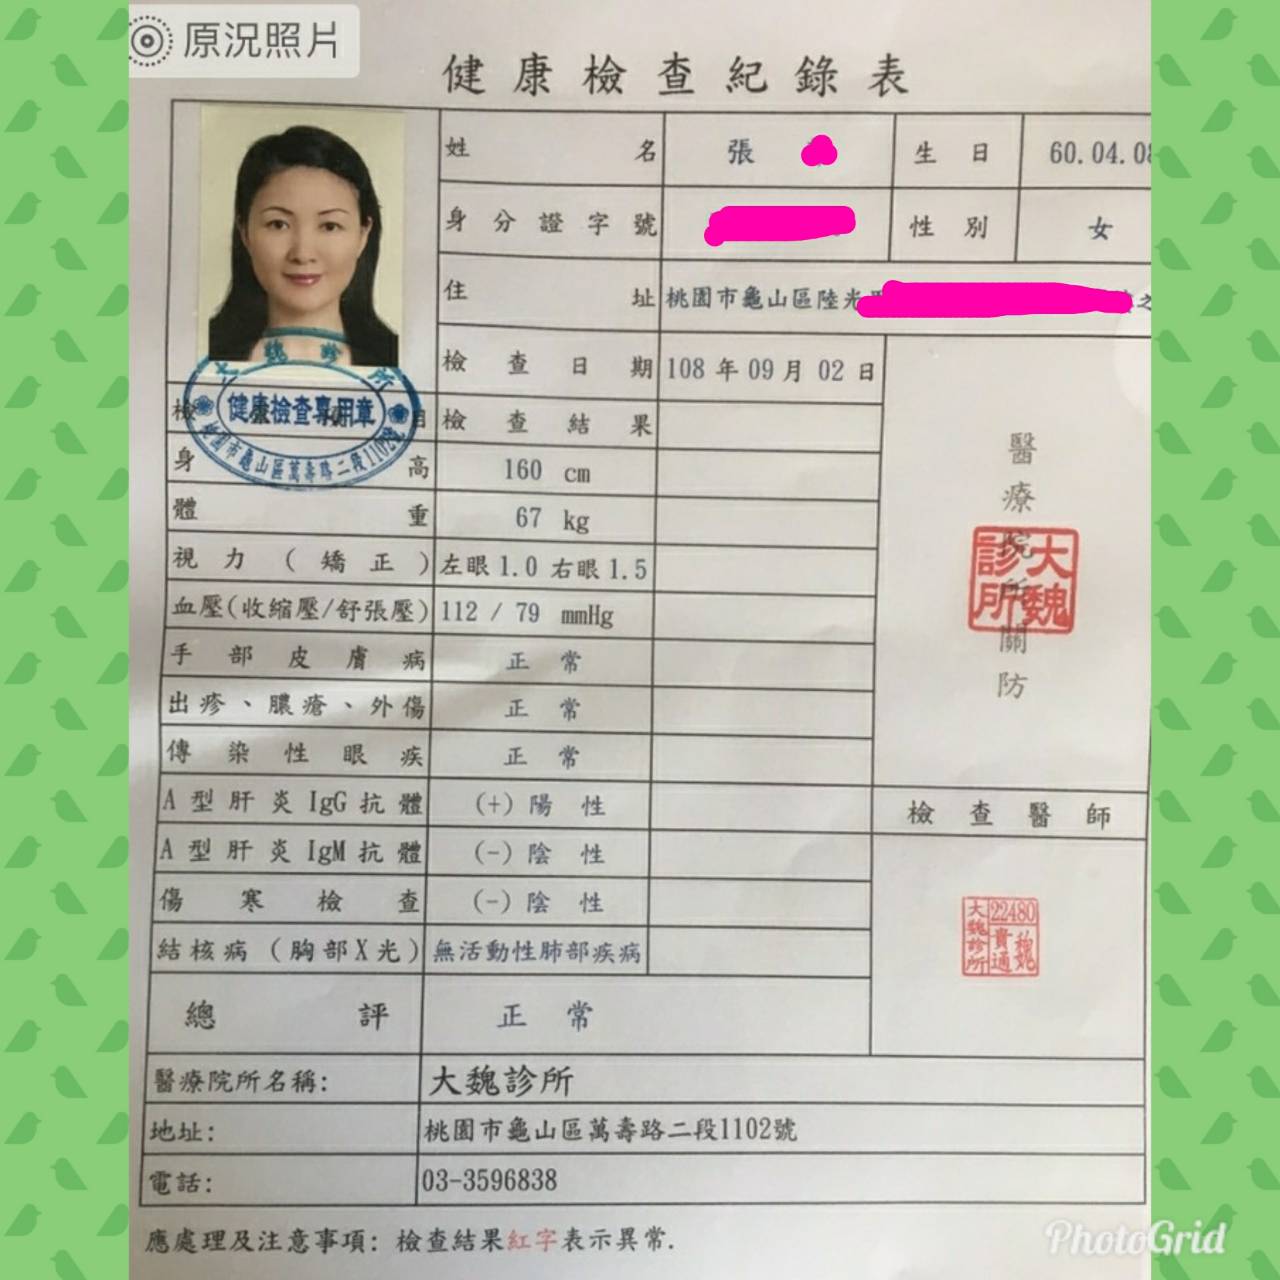 原況照片
健康檢查紀錄表
姓名 張 生日 60.04.08
身分證字號 性別 女
住址 桃園市龜山區陸光 之
檢查日期 108年09月02日
檢 目 檢查結果
大魏診所
健康檢查專用章
桃園市龜山區萬壽路二段1102號
身高 160 cm
體重 67 kg
視力(矯正) 左眼1.0 右眼1.5
血壓(收縮壓/舒張壓) 112 / 79 mmHg
手部皮膚病 正常
出疹、膿瘡、外傷 正常
傳染性眼疾 正常
A型肝炎IgG抗體 (+)陽性
A型肝炎IgM抗體 (-)陰性
傷寒檢查 (-)陰性
結核病(胸部X光) 無活動性肺部疾病
總評 正常
醫療院所關防
大魏診所
檢查醫師
大魏診所
22480
魏貴通
醫療院所名稱: 大魏診所
地址: 桃園市龜山區萬壽路二段1102號
電話: 03-3596838
應處理及注意事項: 檢查結果紅字表示異常.
PhotoGrid